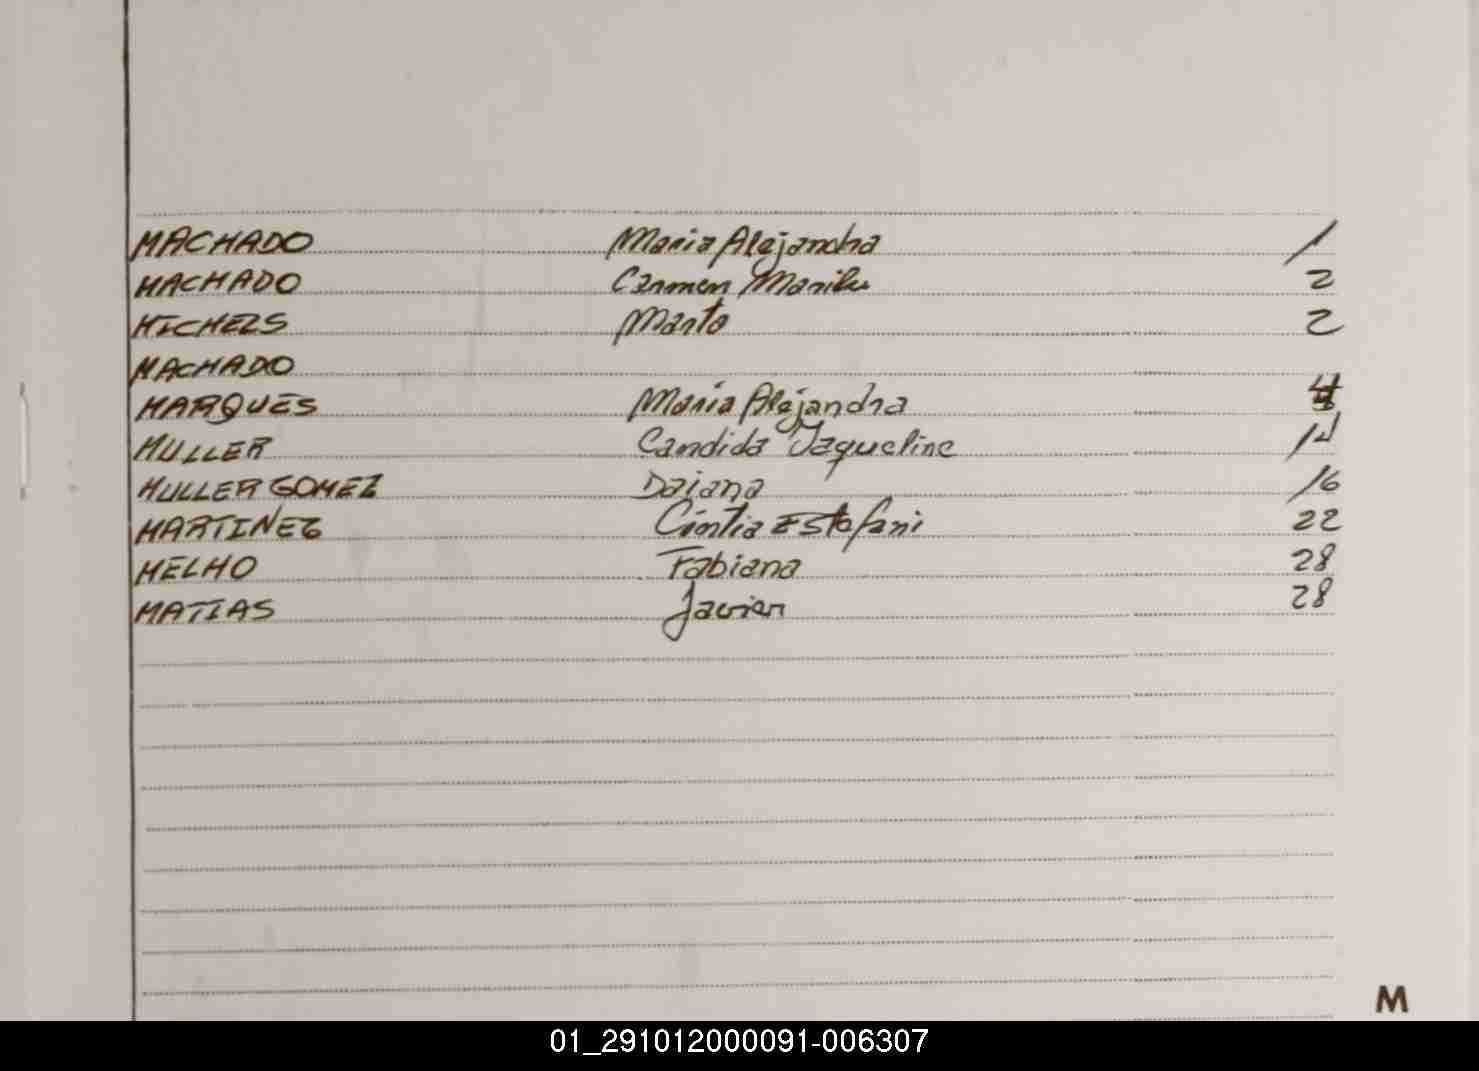 MACHADO Maria Alejandra 1
MACHADO Carmen Marilu 2
MICHELS Marta 2
MACHADO
MARQUES Maria Alejandra 4
MULLER Candida Jaqueline 14
MULLER GOMEZ Daiana 16
MARTINEZ Cintia Estefani 22
MELHO Fabiana 28
MATIAS Javier 28
M
01_291012000091-006307